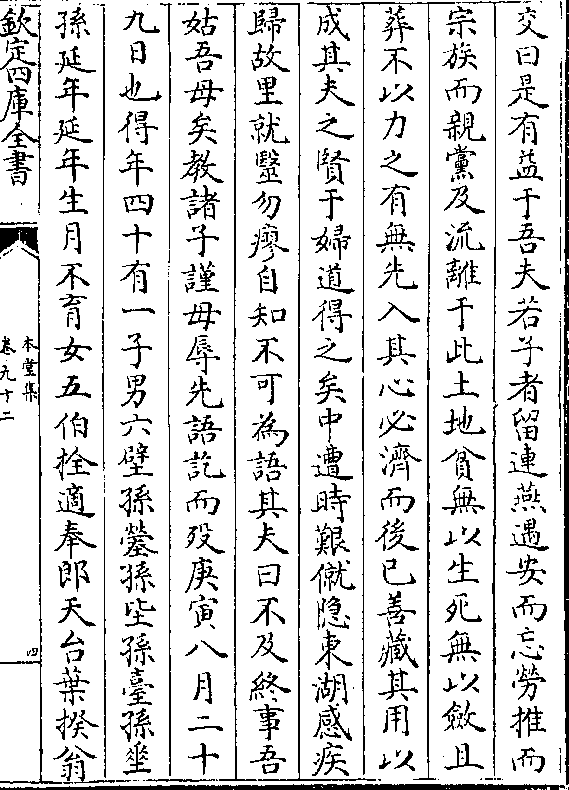 交曰是有益于吾夫若子者留連燕遇安而忘勞推而
宗族而親黨及流離于此土地貧無以生死無以斂且
葬不以力之有無先入其心必濟而後已善藏其用以
成其夫之賢于婦道得之矣中遭時艱僦隠東湖感疾
歸故里就毉勿瘳自知不可為語其夫曰不及終事吾
姑吾毋矣教諸子謹毋辱先語訖而殁庚寅八月二十
九日也得年四十有一子男六壁孫孫坒孫臺孫垂
孫延年延年生月不育女五伯拴適奉郎天台葉揆翁
欽定四庫全書
本堂集
卷九十二
四